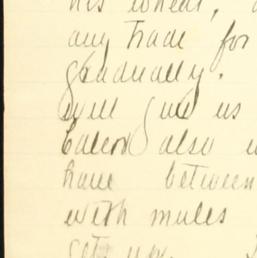 his wheat,
any trade for
gradually.
will give us
Calero also
have between
with mules
gets up.